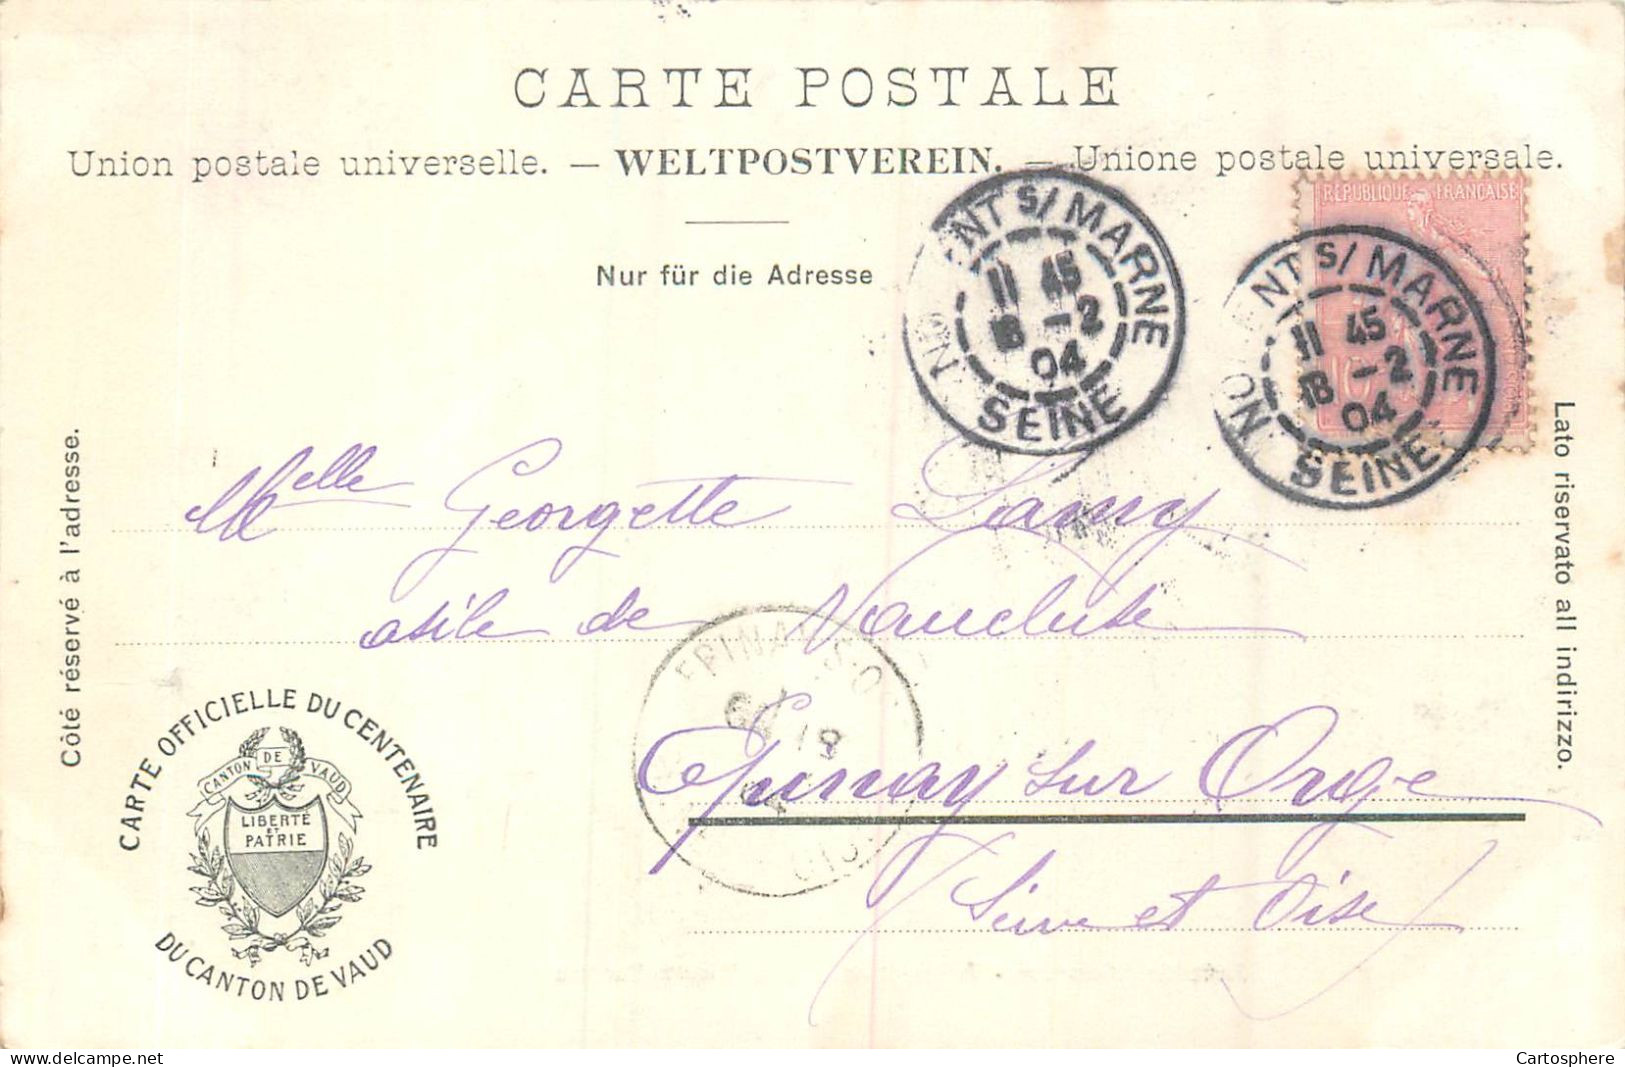 CARTE POSTALE
Union postale universelle. — WELTPOSTVEREIN. — Unione postale universale.
Nur für die Adresse
RÉPUBLIQUE FRANÇAISE
NOGENT S/ MARNE
11 45
18 - 2
04
SEINE
NOGENT S/ MARNE
11 45
18 - 2
04
SEINE
Côté réservé à l'adresse.
Lato riservato all indirizzo.
Melle Georgette Lamy
asile de Vaucluse
Epinay sur Orge
(Seine et Oise)
EPINAY-S-O
19
CARTE OFFICIELLE DU CENTENAIRE
DU CANTON DE VAUD
CANTON DE VAUD
LIBERTÉ
ET
PATRIE
delcampe.net
Cartosphere